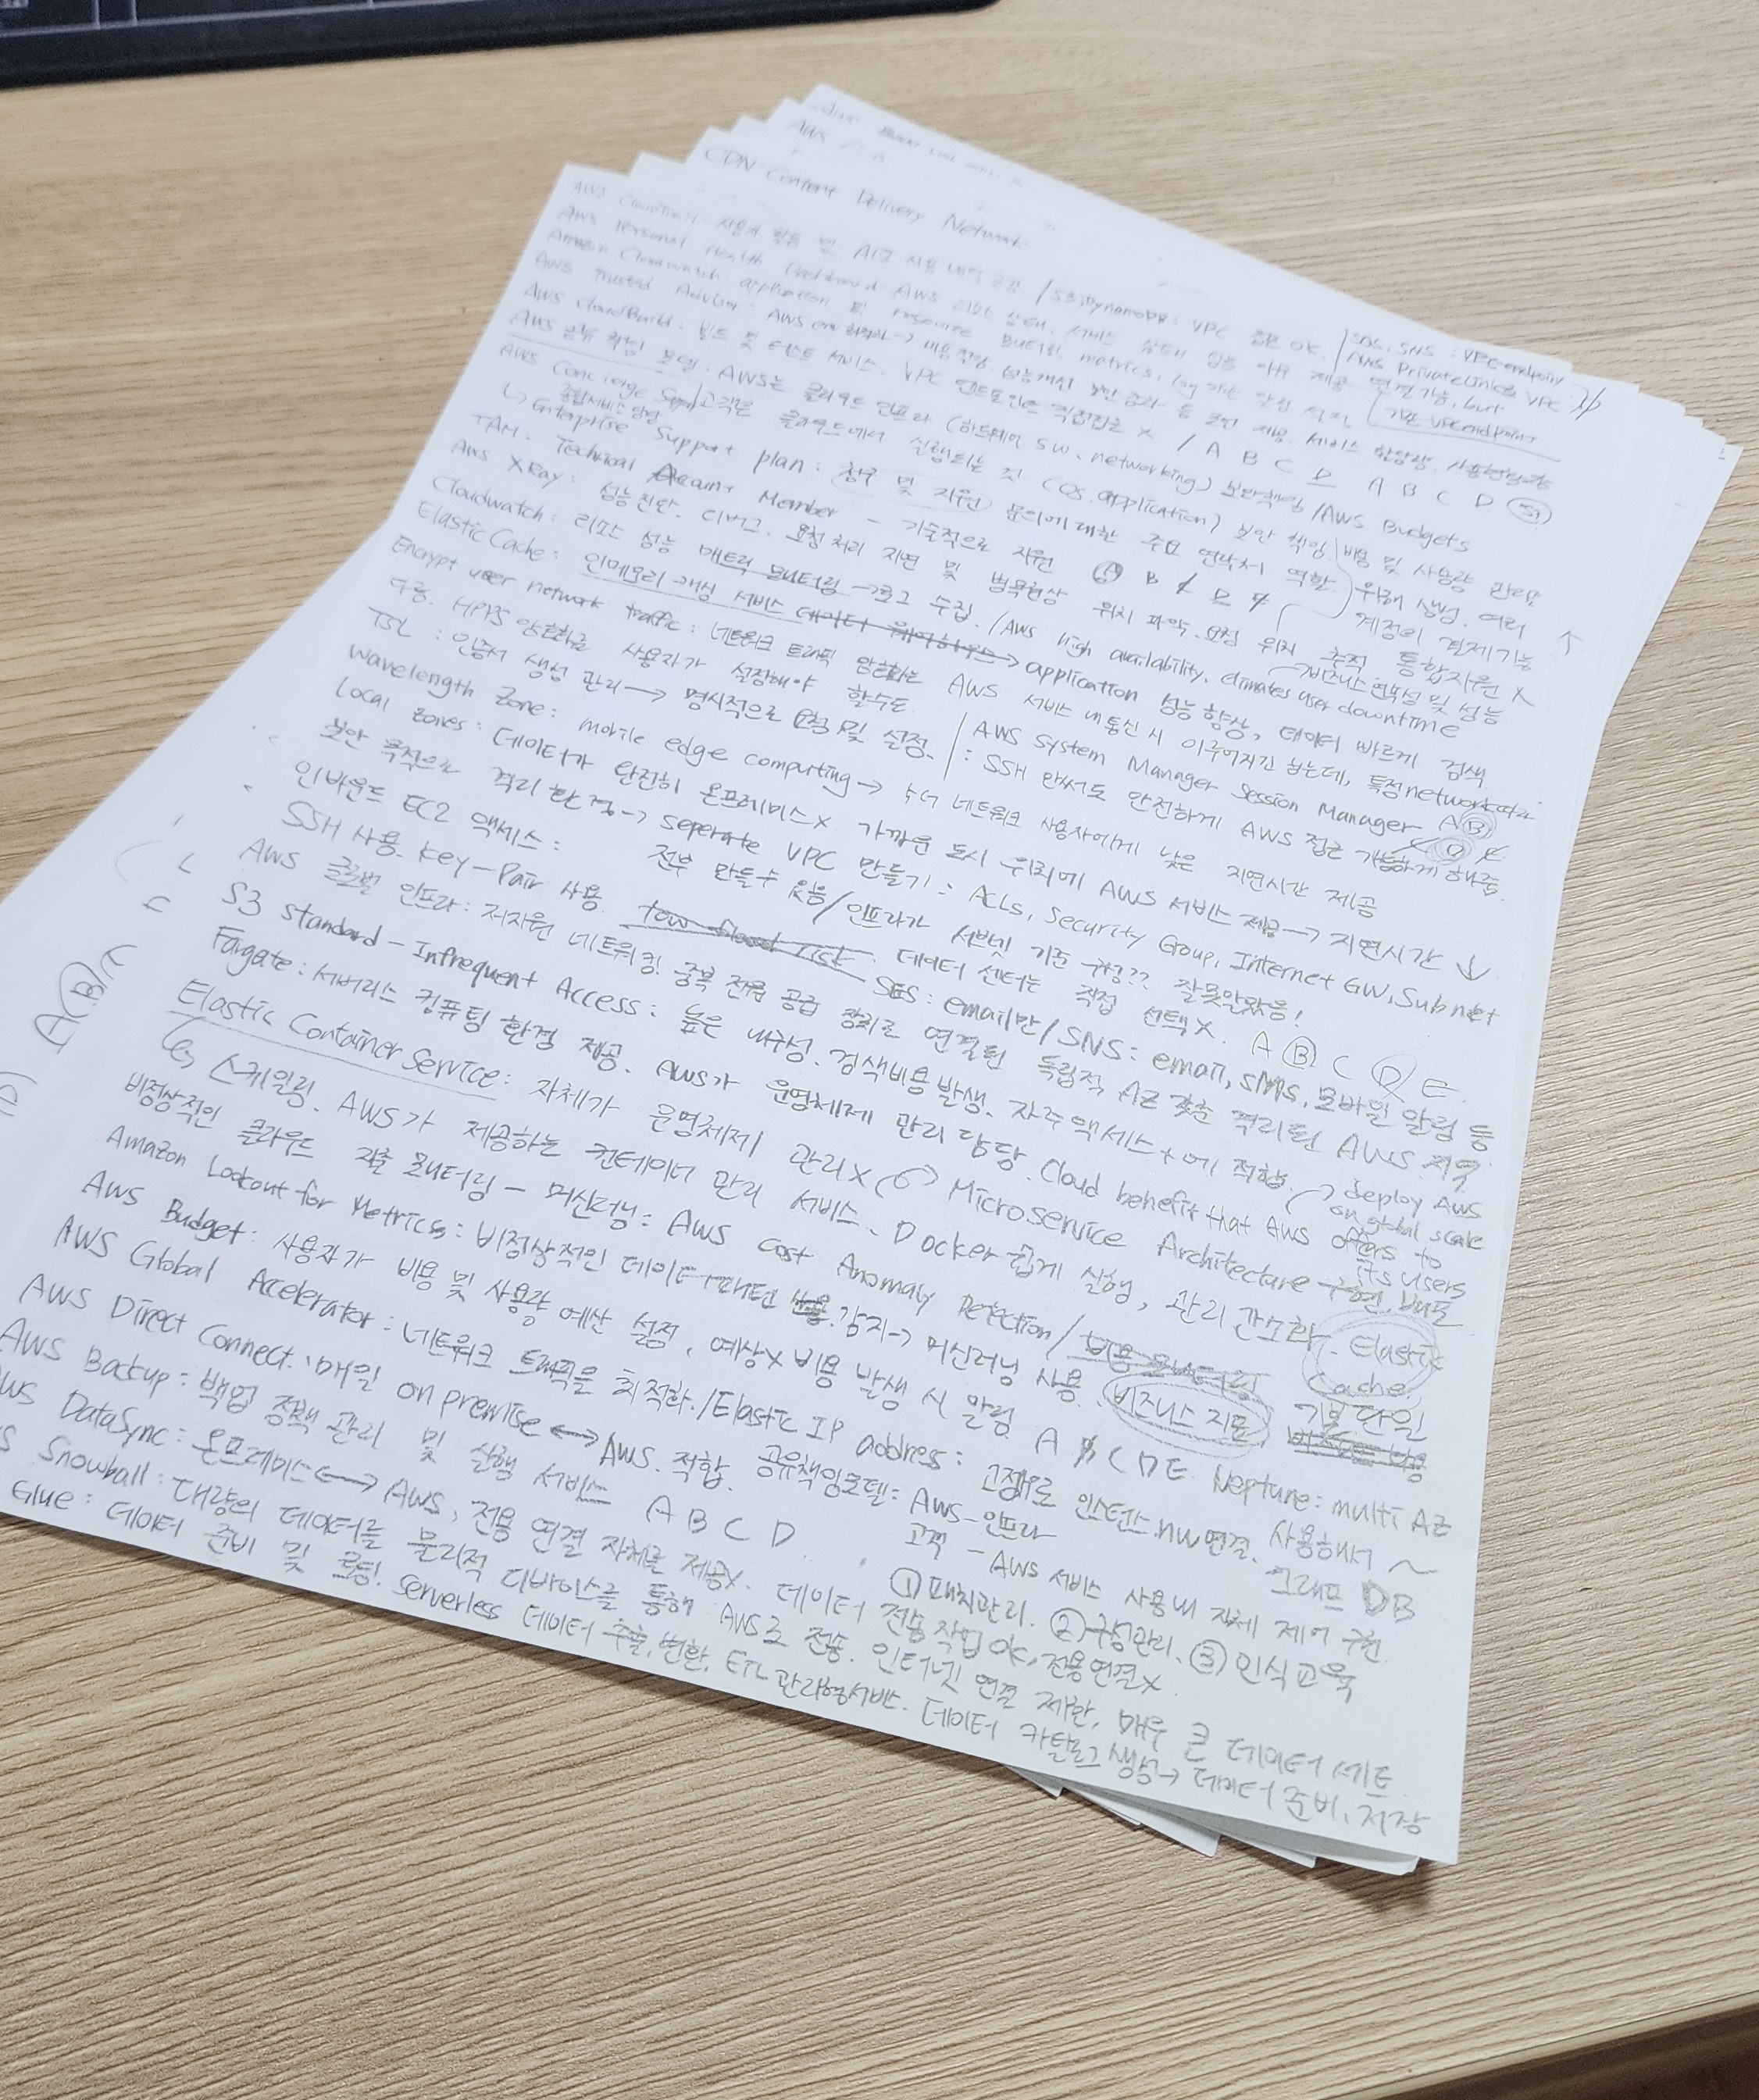 AWS
CDN: Content Delivery Network
AWS CloudTrail: 사용자 활동 및 API 사용 내역 / S3, DynamoDB: VPC OK. / SQS, SNS: VPC endpoint
AWS Personal Health Dashboard: AWS 리소스 상태, 서비스 상태 성능 제공 AWS PrivateLink VPC
Amazon Cloudwatch: application 및 resource 모니터링, matrics, log 연결 가능, but
AWS Trusted Advisor: AWS env 최적화 → 비용절감, 성능개선, 보안 등 제공. 서비스 할당량. 기존 VPC endpoint
AWS CloudBuild: 빌드 및 테스트 서비스. VPC 엔드포인트 직접접근 X / A B C D A B C D E
AWS 공유 책임 모델: AWS는 클라우드 인프라 (하드웨어, SW, networking) 보안책임 / AWS Budgets
고객은 클라우드에서 실행되는 것 (OS, application) 보안 책임 비용 및 사용량 관리
AWS Concierge Support
↳ Enterprise Support plan: 청구 및 지원 문의에 대한 주요 연락처 역할. 위해 생성. 여러
TAM: Technical Account Member - 기술적으로 지원 A B C D E 계정의 결제기능
AWS XRay: 성능진단. 디버그. 요청 처리 지연 및 병목현상 위치 파악. 요청 위치 추적. 통합지원 X
Cloudwatch: 리소스 성능 매트릭 모니터링 → 로그 수집. / AWS high availability, user downtime
Elastic Cache: 인메모리 캐싱 서비스 데이터 웨어하우스 → application 성능 향상, 데이터 빠르게 검색
Encrypt user network traffic: 네트워크 트래픽 암호화는 AWS 서비스 내 통신 시 이루어지긴 하는데, 특정 network
수동. HTTPS 암호화를 사용자가 설정해야 할수도 AWS System Manager Session Manager A B
TSL: 인증서 생성 관리 → 명시적으로 요청 및 설정. : SSH 안써도 안전하게 AWS 접근 가능하게 해줌
Wavelength Zone: mobile edge computing → 5G 네트워크 사용자에게 낮은 지연시간 제공
Local Zones: 데이터가 완전히 온프레미스X 가까운 도시 위치에 AWS 서비스 제공 → 지연시간 ↓
보안 목적으로 격리 환경 → seperate VPC 만들기: ACLs, Security Group, Internet GW, Subnet
인바운드 EC2 액세스: 전부 만들수 있음 / 인프라가 서브넷 기준 구성?? 잘못알았음!
SSH 사용. key-Pair 사용. 데이터 센터는 직접 선택X. A B C D E
AWS 글로벌 인프라: 저지연 네트워킹. 중복 전원 공급 장치로 연결된 독립적 AZ 갖춘 격리된 AWS 지역
SES: email만 / SNS: email, SMS, 모바일 알림 등
S3 standard-Infrequent Access: 높은 내구성. 검색비용발생. 자주 액세스 에 적합. → deploy AWS on global scale
Fargate: 서버리스 컴퓨팅 환경 제공. AWS가 운영체제 관리 담당. Cloud benefit that AWS offers to its users
Elastic Container Service: 자체가 운영체제 관리X Microservice Architecture 구현, 배포
↳ 스케일링. AWS가 제공하는 컨테이너 관리 서비스. Docker 쉽게 실행, 관리 간소화. Elastic Cache
비정상적인 클라우드 지출 모니터링 - 머신러닝: AWS Cost Anomaly Detection / 비용 모니터링
Amazon Lookout for Metrics: 비정상적인 데이터패턴 비용 감지 → 머신러닝 사용. 비즈니스 지표 기본 단일
AWS Budget: 사용자가 비용 및 사용량 예산 설정, 예상X 비용 발생 시 알림 A B C D E Neptune: multi AZ
AWS Global Accelerator: 네트워크 트래픽을 최적화. / Elastic IP address: 고정IP로 인스턴스 NW 연결. 사용해서 ~
AWS Direct Connect: 매일 on premise ↔ AWS. 적합. 공유책임모델: AWS-인프라 그래프 DB
AWS Backup: 백업 정책 관리 및 실행 서비스 A B C D 고객 - AWS 서비스 사용내 자체 제어 구현.
AWS DataSync: 온프레미스 ↔ AWS, 전용 연결 자체를 제공X. 데이터 전송 작업 OK, 전용연결X
① 패치관리. ② 구성관리. ③ 인식 교육
Snowball: 대량의 데이터를 물리적 디바이스를 통해 AWS로 전송. 인터넷 연결 제한, 매우 큰 데이터 세트
Glue: 데이터 준비 및 로딩. serverless 데이터 추출, 변환, ETL 관리형서비스. 데이터 카탈로그 생성 → 데이터 준비, 저장